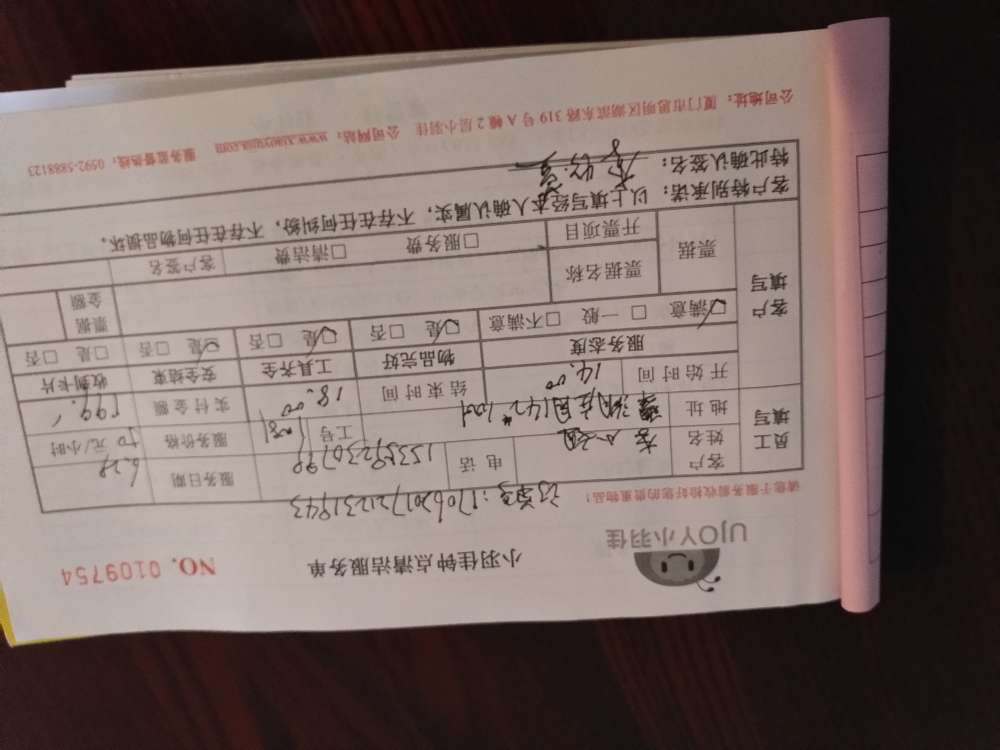 UJOY小羽佳
小羽佳钟点清洁服务单
NO. 0109754
请您于服务前收拾好您的贵重物品!
员工填写
客户姓名
电话
15359230799
服务日期
6.28
地址
工号
服务价格
元/小时
开始时间
14.00
结束时间
18.00
实付金额
199.
收到卡片
客户填写
服务态度
物品完好
工具齐全
安全结束
☑满意 □一般 □不满意
☑是 □否
☑是 □否
☑是 □否
□是 □否
票据
票据名称
票据金额
开票项目
□服务费 □清洁费
客户签名
客户特别承诺:以上填写经本人确认属实,不存在任何纠纷,不存在任何物品损坏。
特此确认签名:
公司地址:厦门市思明区湖滨东路 319 号 A 幢 2 层小羽佳 公司网站:www.xiaoyujia.com 服务监督热线:0592-5888123